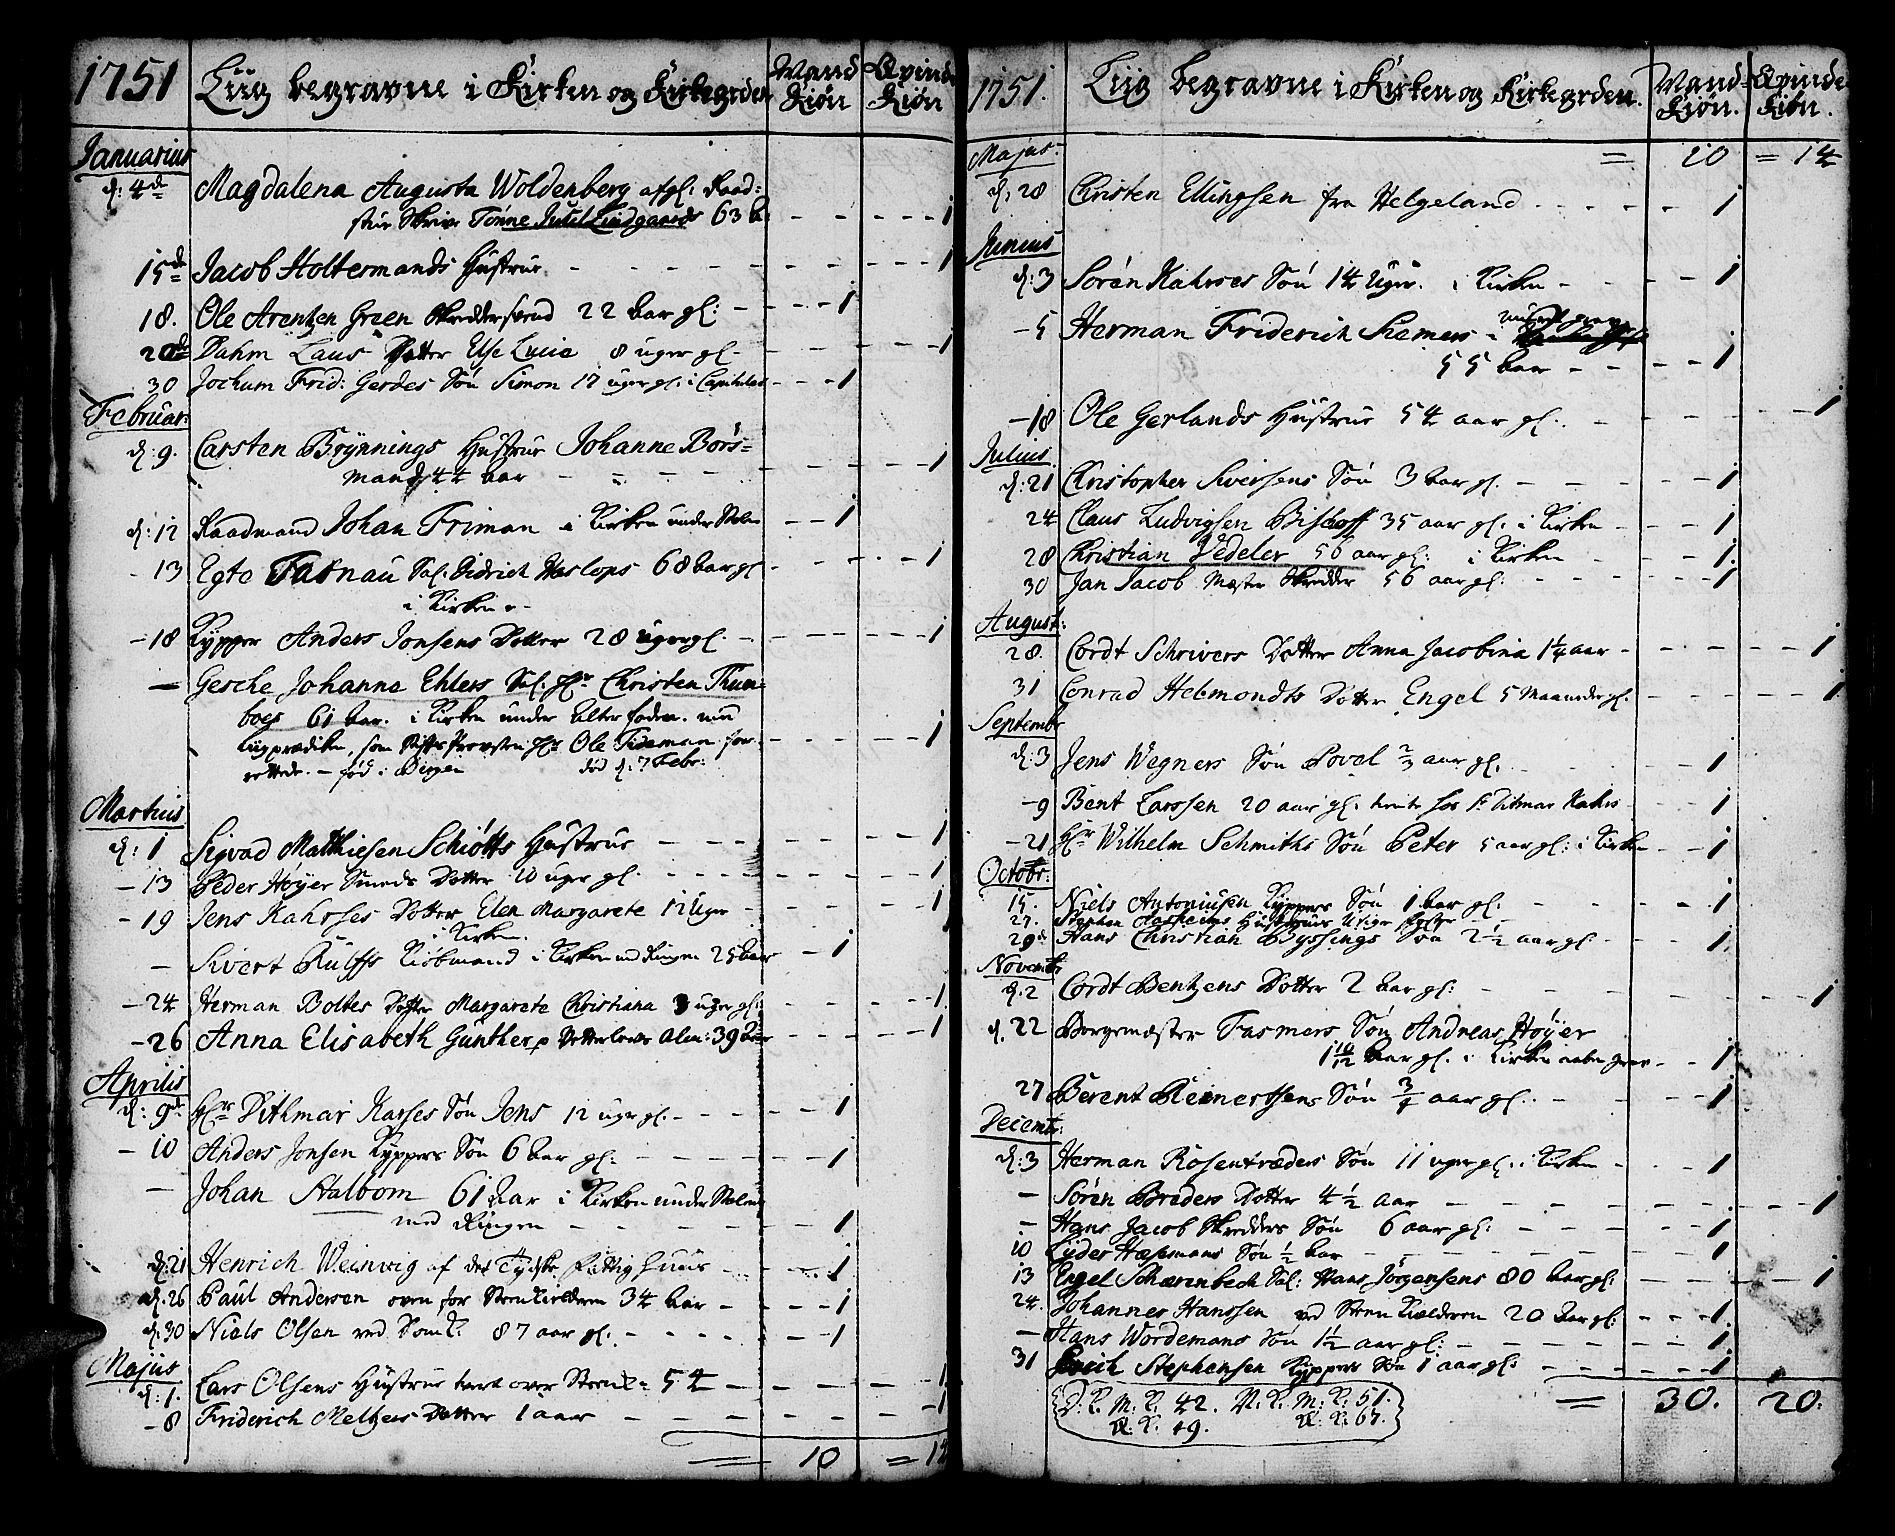 1751 Liig begravne i Kirken og Kirkegrden Mand Kiøn Qvinde Kiøn
Januarius
d: 4de Magdalena Augusta Woldenberg afgl. Raad=
stue Skriver Tønne Juul Lindgaards 63 - - - - - 1
15de Jacob Holtermands Hustrue - - - - 1
18. Ole Arentzen Green Skreddersvend 22 aar gl: - - - 1
20de Dahm Laus Dotter Else Lucie 8 uger gl - - - 1
30 Jochum Frid: Gerdes Søn Simon 17 uger gl. i Capitelet - - - 1
Februar:
d: 9. Carsten Brynnings Hustrue Johanne Børs=
mand 44 aar - - - - 1
d: 12 Raadmand Johan Friman i Kirken under Steen - - 1
- 13 Egto Tasnau Sal. Didrich Haslops 68 aar gl - - - 1
i Kirken
- 18 Kypper Anders Jonsens Dotter 28 uger gl. - - - 1
- Gesche Johanne Ehlers Sal. Hr Christen Thue=
boes 61 aar. i Kirken under Alter foden. med
Liigprædiken, som Stifts Provsten Hr Ole Tideman for= - - - 1
rettede. - fød i Bergen død d: 7 Febr:
Martius
d: 1 Sigvad Mathiesen Schiøtts Hustrue - - - - 1
- 13 Peder Høyer Smeds Dotter 10 uger gl. - - - - 1
- 19 Jens Kahrses Dotter Elen Margarete 12 Uger - - - 1
i Kirken.
- Sivert Rulffs Kiøbmand i Kirken med Ringen 25 aar - 1
- 24 Herman Boltes Dotter Margarete Christiana 3 uger gl: - - - 1
- 26 Anna Elisabeth Günther 39 aar - - - 1
Aprilis
d: 9de Hr Dithmar Karses Søn Jens 12 uger gl. - - - 1
- 10 Anders Jonsen Kyppers Søn 6 aar gl: - - - - 1
- Johan Stalbom 61 aar i Kirken under Steen
med Ringen - - - - 1
d: 21 Henrich Weinwig af det Tydske Fattighuus - - - 1
d. 26 Paul Andersen oven for Steenkielderen 34 aar - - - 1
d: 30 Niels Olsen ved DomK. 87 aar gl. - - - - 1
Majus
d: 1. Lars Olsens Hustrue tent over StenK= 54 - - - - 1
- 8 Friderich Meltzers Dotter 1 aar - - - - 1
= 10 = 14
1751. Liig begravne i Kirken og Kirkegrden. Mand= Kiøn. Qvinde Kiøn.
Majus: = 10 = 14
d: 28 Christen Ellingsen fra Helgeland - - - - 1
Junius
d: 3 Søren Kahrses Søn 14 Uger. i Kirken - - - 1
- 5 Herman Friderich Siemers i
55 aar - - - 1
- 18 Ole Gerlands Hustrue 54 aar gl. - - - - 1
Julius
d: 21 Christopher Siversens Søn 3 aar gl. - - - - 1
24 Claus Ludvigsen Bischoff 35 aar gl. i Kirken - - 1
28 Christian Vedeler 56 aar gl: i Kirken - - 1
30 Jan Jacob Mester Skredder 56 aar gl: - - - - 1
August:
28. Cordt Schrivers Dotter Anna Jacobina 1¼ aar - - - - 1
31 Conrad Helmondts Dotter Engel 5 Maaneder gl. - - - - 1
Septembr
d: 3 Jens Wegners Søn Povel ⅔ aar gl. - - - 1
- 9 Bent Larssen 20 aar gl. tiente hos Hr Ditmar Kahrs - - 1
- 21 Hr Wilhelm Schmiths Søn Peter 5 aar gl: i Kirken - - 1
Octobr:
15. Niels Antoniusen Kyppers Søn 1 aar gl. - - - - 1
27. Stephen Hustrues Utiige foster - -
29d Hans Christian Byssings Søn 2½ aar gl. - - - 1
Novembr
d: 2 Cordt Bentzens Dotter 2 aar gl: - - - - 1
d. 22 Borgemester Fasmers Søn Andreas Høyer
1 10/12 aar gl. i Kirken aaben grav - - 1
27 Berent Reinertsens Søn ¾ aar gl. - - - 1
Decembr:
d: 3 Herman Rosentræders Søn 11 uger gl. i Kirken - - - 1
- Søren Breders Dotter 4½ aar - - - - 1
- Hans Jacob Skredders Søn 6 aar gl: - - - - 1
10 Lyder Hasemans Søn ½ aar - - - - 1
13 Engel Scharenbech Sal: Hans Jørgensens 80 aar gl: - - - - 1
24. Johannes Hanssen ved Steen Kielderen 20 aar gl: - - - 1
- Hans Wordemans Søn 1½ aar gl: - - - - 1
31 Erich Stephensen Kyppers Søn 1 aar gl: - - - - 1
D. K. M. K. 42. N. K. M: K: 51.
Q: K. 49. Q: K: 67.
= 30. 20.